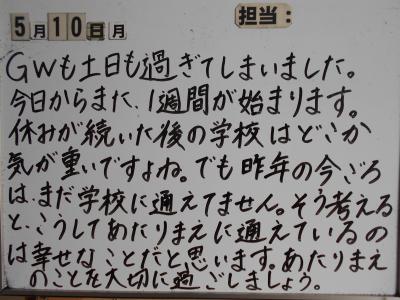 5月10日月 担当:
GWも土日も過ぎてしまいました。
今日からまた、1週間が始まります。
休みが続いた後の学校はどこか
気が重いですよね。でも昨年の今ごろ
は、まだ学校に通えてません。そう考える
と、こうしてあたりまえに通えているの
は幸せなことだと思います。あたりまえ
のことを大切に過ごしましょう。